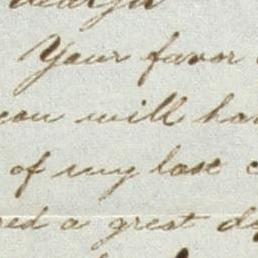 Your favor
will ha
of my last c
red a great d